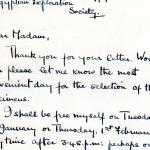 Egyptian Exploration
Society
Madam,
Thank you for your letter.
please let me know the most
convenient day for the selection of the
I shall be free myself on Tuesday
January or Thursday, 1st February
time after 3.45 p.m: perhaps